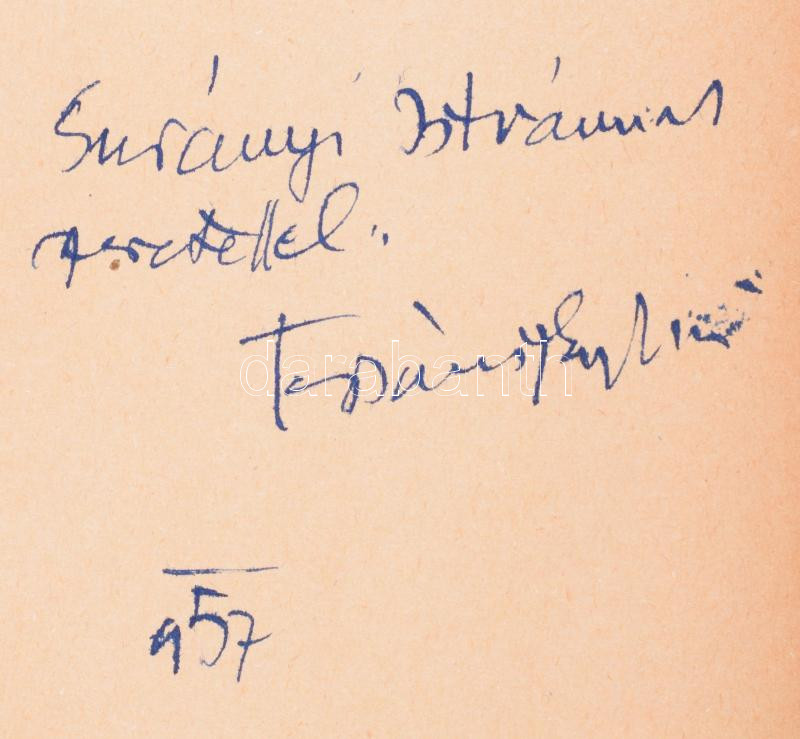 Surányi Istvánnak
szeretettel.
Tersánszky Jenő
darabanth
957